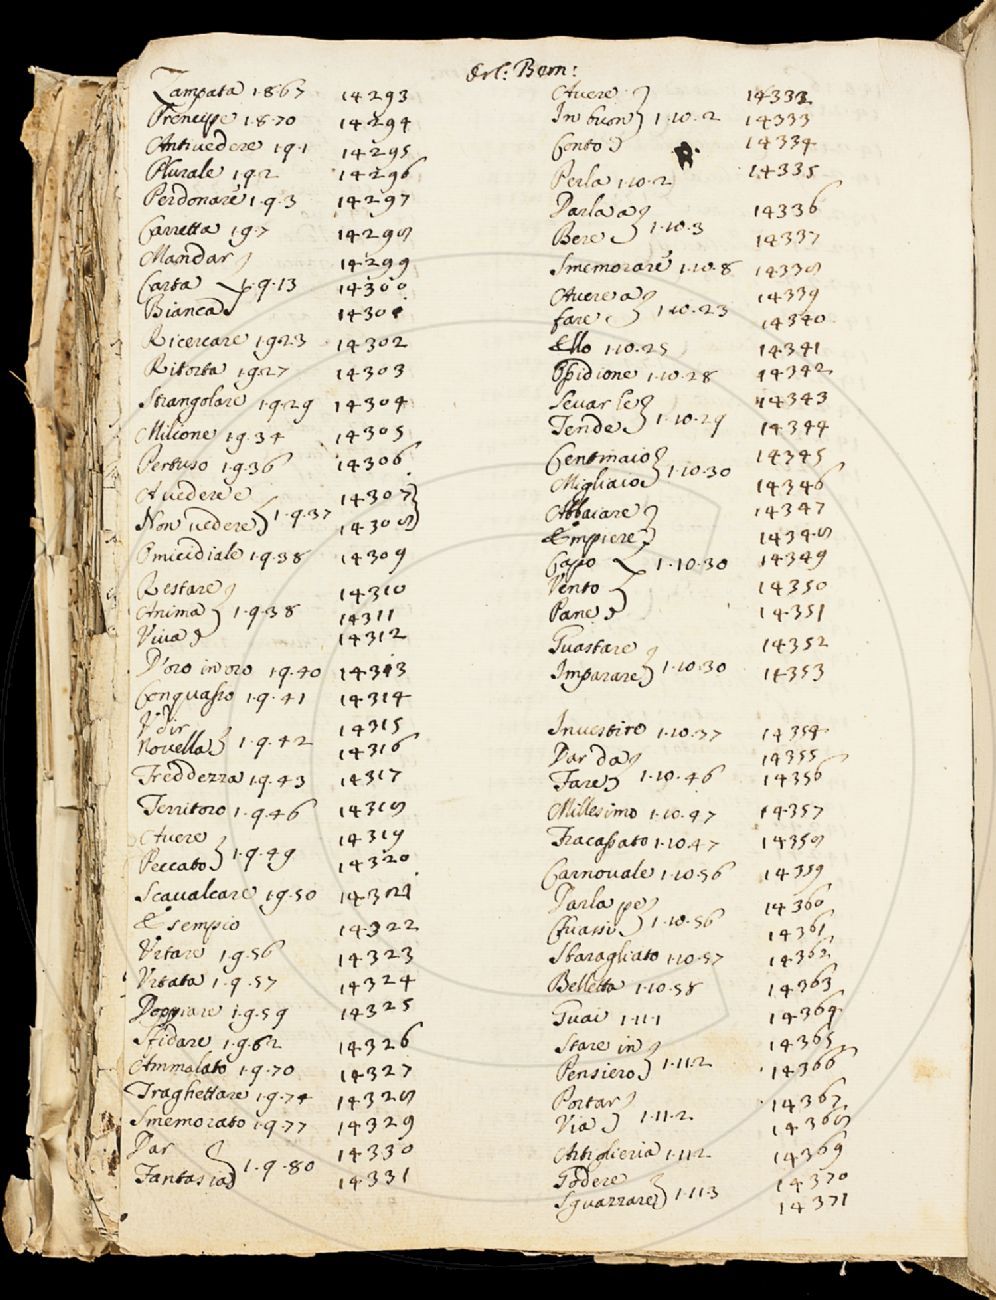 Orl: Bern:
Zampata 1·8·67 14293
Prencipe 1·8·70 14294
Antiuedere 1·9·1 14295
Plurale 1·9·2 14296
Perdonare 1·9·3 14297
Carretta 1·9·7 14298
Mandar 14299
Carta 1·9·13 14300
Bianca 14301
Ricercare 1·9·23 14302
Ritorta 1·9·27 14303
Strangolare 1·9·29 14304
Milione 1·9·34 14305
Pertuso 1·9·36 14306
Auedere e 14307
Non uedere 1·9·37 14308
Omicidiale 1·9·38 14309
Restare 14310
Anima 1·9·38 14311
Viua 14312
D'oro in oro 1·9·40 14313
Conquasso 1·9·41 14314
Vdir 14315
Nouella 1·9·42 14316
Freddezza 1·9·43 14317
Territoro 1·9·46 14318
Auere 14319
Peccato 1·9·49 14320
Scaualcare 1·9·50 14321
Esempio 14322
Vrtare 1·9·56 14323
Vrtata 1·9·57 14324
Doppiare 1·9·59 14325
Sfidare 1·9·62 14326
Ammalato 1·9·70 14327
Traghettare 1·9·74 14328
Smemorato 1·9·77 14329
Dar 14330
Fantasia 1·9·80 14331
Auere 14332
In buon 1·10·2 14333
Conto 14334
Perla 1·10·2 14335
Darla a 14336
Bere 1·10·3 14337
Smemorare 1·10·8 14338
Auere a 14339
fare 1·10·23 14340
Ello 1·10·25 14341
Ossidione 1·10·28 14342
Leuar le 14343
Tende 1·10·29 14344
Centinaio 14345
Migliaio 1·10·30 14346
Abbaiare 14347
Empiere 14348
Capo 1·10·30 14349
Vento 14350
Pane 14351
Guastare 14352
Imparare 1·10·30 14353
Inuestire 1·10·37 14354
Dar da 14355
Fare 1·10·46 14356
Millesimo 1·10·47 14357
Fracassato 1·10·47 14358
Carnouale 1·10·56 14359
Darla pe 14360
Chiassi 1·10·56 14361
Sbaragliato 1·10·57 14362
Belletta 1·10·58 14363
Guai 1·11·1 14364
Stare in 14365
Pensiero 1·11·2 14366
Portar 14367
Via 1·11·2 14368
Artiglieria 1·11·2 14369
Godere 14370
Sguazzare 1·11·3 14371